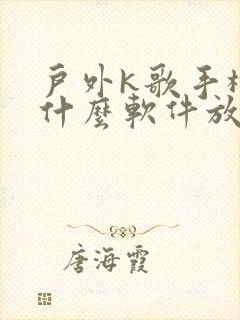 戶外K歌手機
什麼軟件放
唐海霞